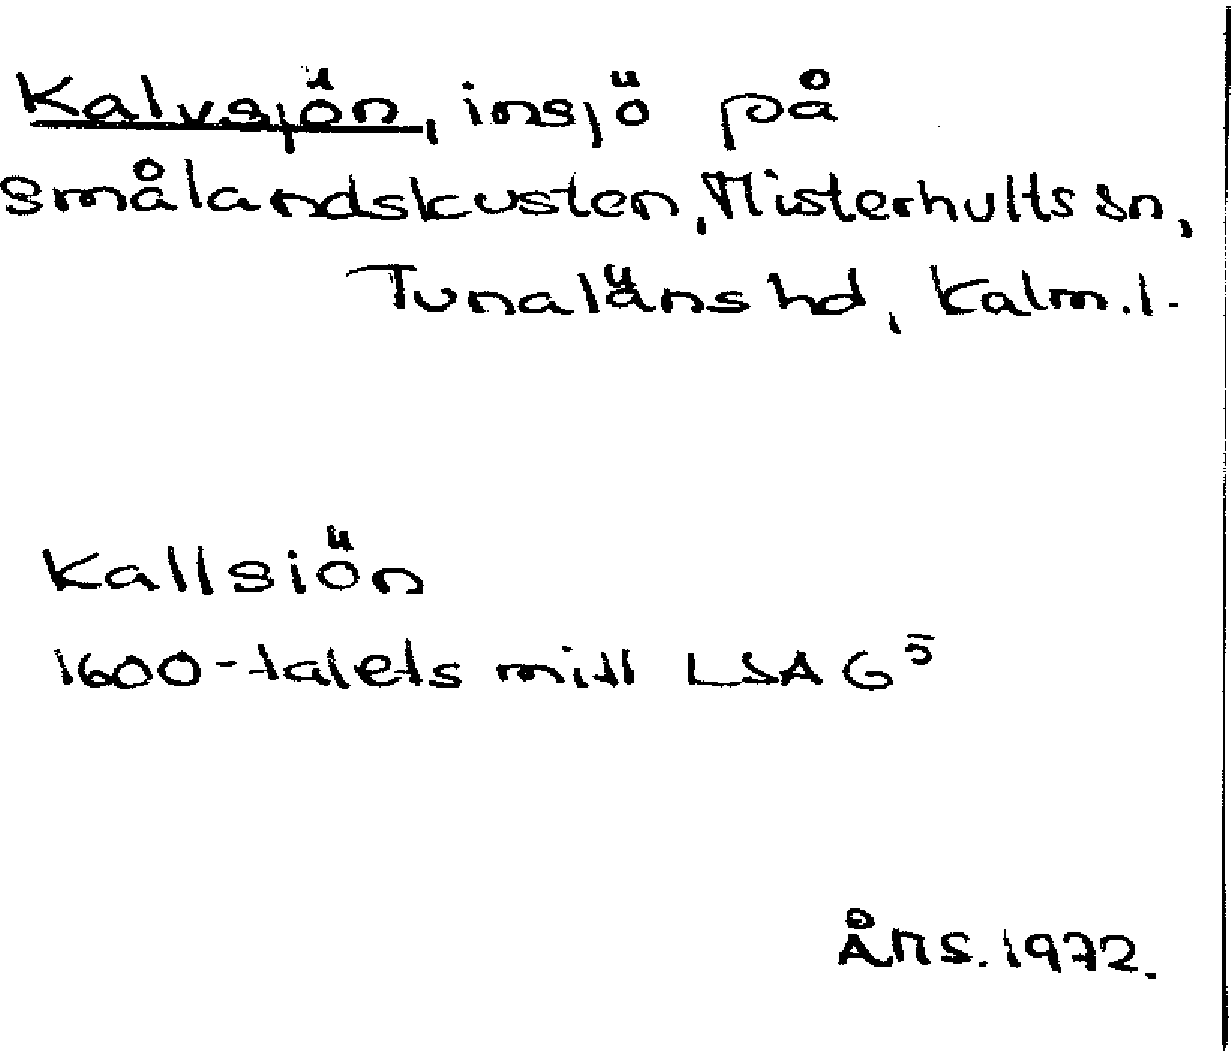 Kalvsjön, insjö på
Smålandskusten, Misterhults sn,
Tunaläns hd, Kalm.l.
Kallsiön
1600-talets mitt LSA G⁵
ÅMS. 1972.